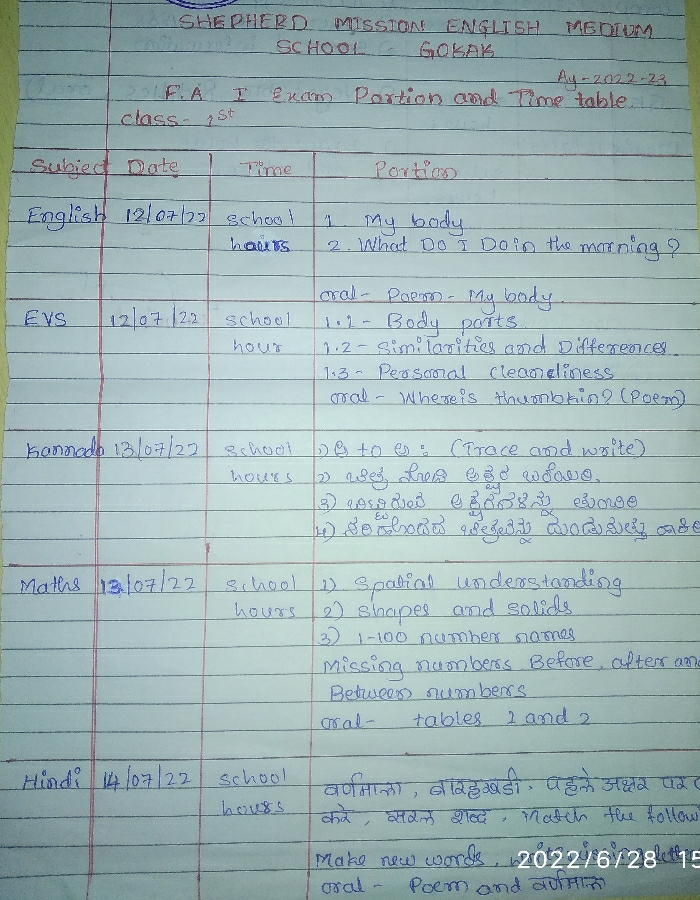 SHEPHERD MISSION ENGLISH MEDIUM
SCHOOL - GOKAK
Ay-2022-23
F.A I Exam Portion and Time table.
class- 1st
Subject Date Time Portion
English 12/07/22 school 1 My body
hours 2. What Do I Do in the morning?
oral- Poem- My body.
EVS 12/07/22 school 1.1- Body parts
hour 1.2- Similarities and Differences.
1.3- Personal cleanliness
oral- Where is thumbkin? (Poem)
Kannada 13/07/22 school 1) ಅ to ಅಃ (Trace and write)
hours 2) ಚಿತ್ರ ನೋಡಿ ಅಕ್ಷರ ಬರೆಯಿರಿ.
3) ಬಿಟ್ಟಿರುವ ಅಕ್ಷರಗಳನ್ನು ತುಂಬಿರಿ
4) ಸರಿಹೊಂದುವ ಚಿತ್ರಕ್ಕೆ
Maths 13/07/22 school 1) Spatial understanding
hours 2) Shapes and solids
3) 1-100 number names
Missing numbers Before, after an
Between numbers
oral- tables 1 and 2
Hindi 14/07/22 school वर्णमाला, बारहखडी. पहले अक्षर पर
hours करे, सरल शब्द, Match the follow
Make new words.
oral- Poem and वर्णमाला
2022/6/28 15